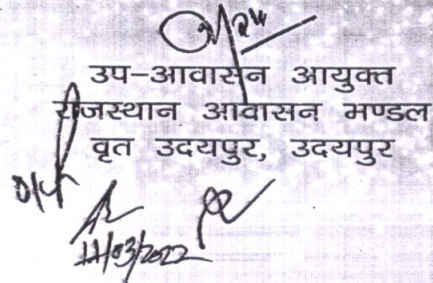 उप-आवासन आयुक्त
राजस्थान आवासन मण्डल
वृत उदयपुर, उदयपुर
11/03/2022